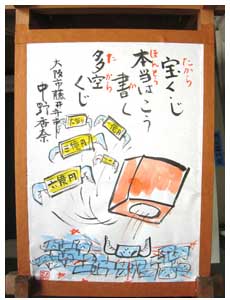 宝くじ
たから
本当はこう
ほんとう
書く
か
多空
た から
くじ
大阪市藤井寺市
中野香奈
一億円
三億円
六億円